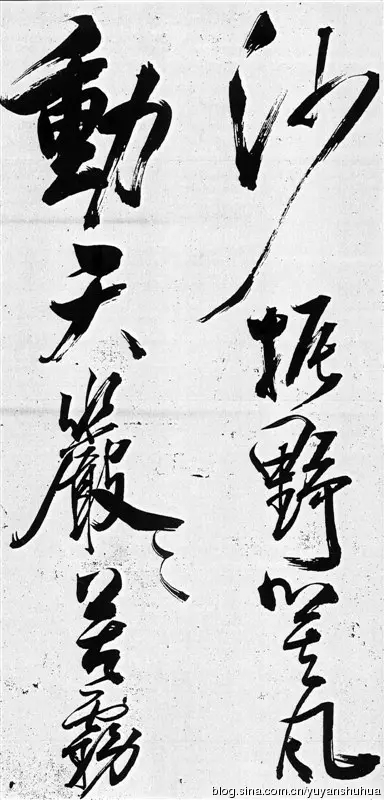 沙振野箕風
動天嚴〻苦霧
blog.sina.com.cn/yuyanshuhua